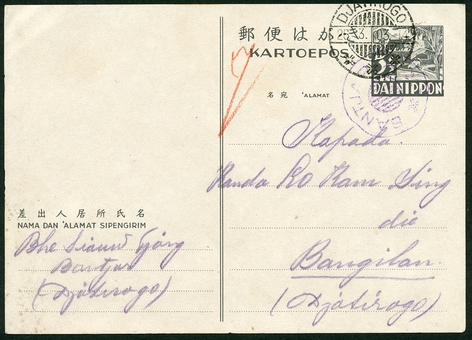 郵便はが
KARTOEPOS
DJATIROGO
25.3.03
3½
DAI NIPPON
BANTJA
名宛 'ALAMAT
Kapada
Ko Kam Sing
die
Bangilan.
(Djatirogo)
差出人居所氏名
NAMA DAN 'ALAMAT SIPENGIRIM
Bhe Siauw Tjong
Bantjar
(Djatirogo)